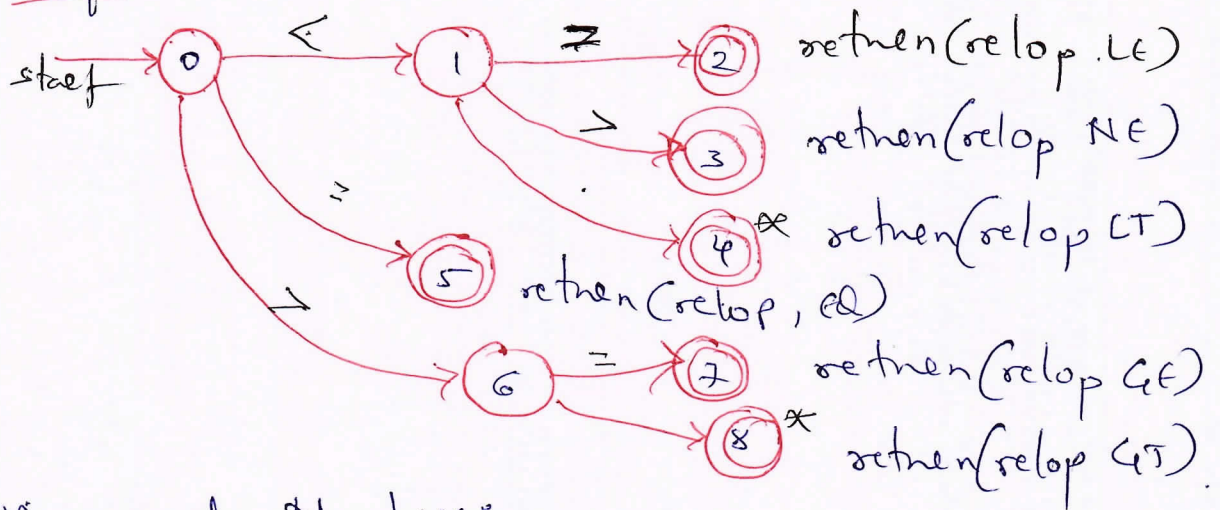 start 0 < 1 = 2 return(relop .LE)
> 3 return(relop NE)
= . 4 * return(relop LT)
5 return(relop, EQ)
>
6 = 7 return(relop GE)
8 * return(relop GT).